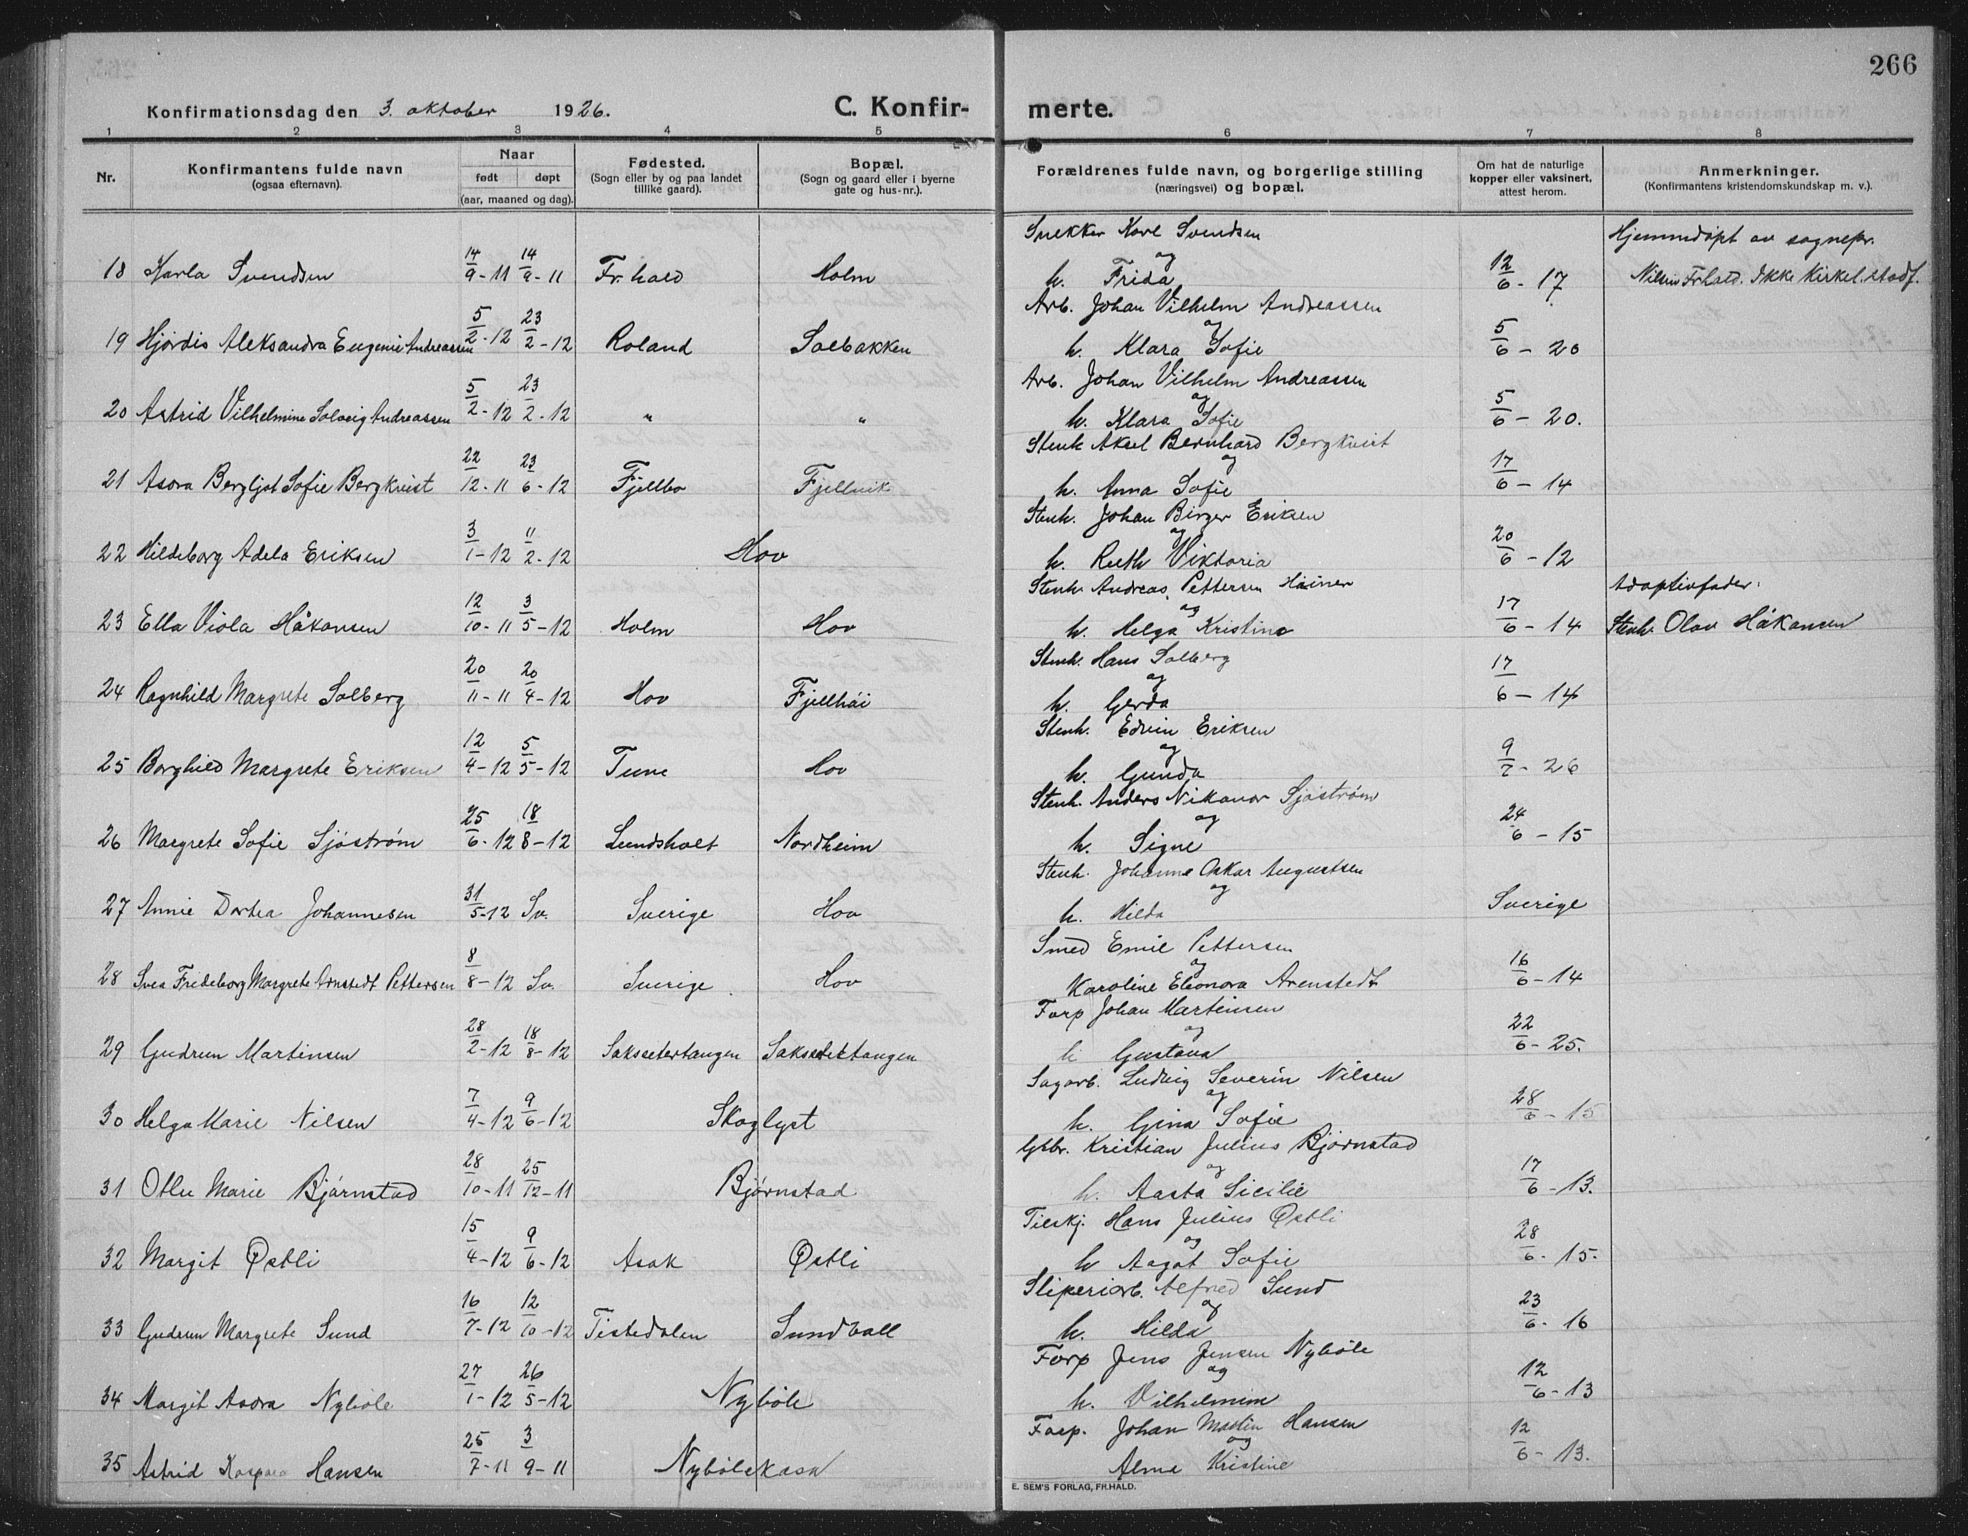 266
Konfirmationsdag den 3. oktober 1926.
C. Konfir-
merte.
1 2 3 4 5 6 7 8
Nr.
Konfirmantens fulde navn
(ogsaa efternavn).
Naar
født døpt
(aar, maaned og dag).
Fødested.
(Sogn eller by og paa landet
tillike gaard).
Bopæl.
(Sogn og gaard eller i byerne
gate og hus-nr.).
Forældrenes fulde navn, og borgerlige stilling
(næringsvei) og bopæl.
Om hat de naturlige
kopper eller vaksinert,
attest herom.
Anmerkninger.
(Konfirmantens kristendomskundskap m. v.).
Snekker Karl Svendsen Hjemmedøpt av sognepr.
og
18 Karla Svendsen 14/9-11 14/9-11 Fr.hald Holm h. Frida 12/6-17 Nilsen Frhald. Ikke kirkel. stadf.
Arb. Johan Vilhelm Andreassen
og
19 Hjørdis Aleksandra Eugenie Andreassen 5/2-12 23/2-12 Roland Solbakken h. Klara Sofie 5/6-20
Arb. Johan Vilhelm Andreassen
og
20 Astrid Vilhelmine Solveig Andreassen 5/2-12 23/2-12 " " h. Klara Sofie 5/6-20.
Stenh. Aksel Bernhard Bergkvist
og
21 Asora Bergljot Sofie Bergkvist 22/12-11 23/6-12 Fjellbo Fjellvik h. Anna Sofie 17/6-14
Stenh. Johan Birger Eriksen
og
22 Hildeborg Adela Eriksen 3/1-12 11/2-12 Hov h. Ruth Viktoria 20/6-12
Stenh. Andreas Pettersen Heiner Adoptivfader:
og
23 Ella Viola Håkansen 12/10-11 3/5-12 Holm Hov h. Helga Kristine 17/6-14 Stenh. Olav Håkansen
Stenh. Hans Solberg
og
24 Ragnhild Margrete Solberg 20/11-11 20/4-12 Hov Fjellhöi h. Gerda 17/6-14
Stenh. Edvin Eriksen
og
25 Borghild Margrete Eriksen 12/4-12 5/5-12 Tune Hov h. Gunda 9/7-26
Stenh. Anders Nikanor Sjöström
og
26 Margrete Sofie Sjöström 25/6-12 18/8-12 Lundsholt Nordheim h. Signe 24/6-15
Stenh. Johannes Oskar Augustsen
og
27 Annie Dortea Johannesen 31/5-12 Sv. Sverige Hov h. Hilda Sverige
Smed Emil Pettersen
og
28 Svea Fredeborg Margrete Arnstedt Pettersen 8/8-12 Sv. Sverige Hov Karoline Eleonora Arenstedt 16/6-14
Forp Johan Martinsen
og
29 Gudrun Martinsen 28/2-12 18/8-12 Saksetertangen Saksetertangen h Gustava 22/6-25.
Sagarb. Ludvig Severin Nilsen
og
30 Helga Marie Nilsen 7/4-12 9/6-12 Skoglyst h. Gina Sofie 28/6-15
Gbr. Kristian Julius Bjørnstad
og
31 Otlu Marie Bjørnstad 28/10-11 25/12-11 Bjørnstad h. Aasta Sicilie 17/6-13.
Tilskj. Hans Julius Østli
og
32 Margit Østli 15/4-12 9/6-12 Asak Østli h Aagot Sofie 28/6-15.
Sliperiarb. Alfred Sund
og
33 Gudrun Margrete Sund 16/7-12 12/10-12 Tistedalen Sundvall h. Hilda 23/6-16
Forp Jens Jensen Nybøle
og
34 Margit Asora Nybøle 27/1-12 26/5-12 Nybøle h. Vilhelmine 12/6-13
Forp. Johan Martin Hansen
og
35 Astrid Kaspara Hansen 25/7-11 3/9-11 Nybølekasa Alma Kristine 12/6-13.
E. SEM'S FORLAG, FR.HALD.